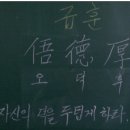 급훈
悟德厚
오덕후
자신의 덕을 두텁게 하라